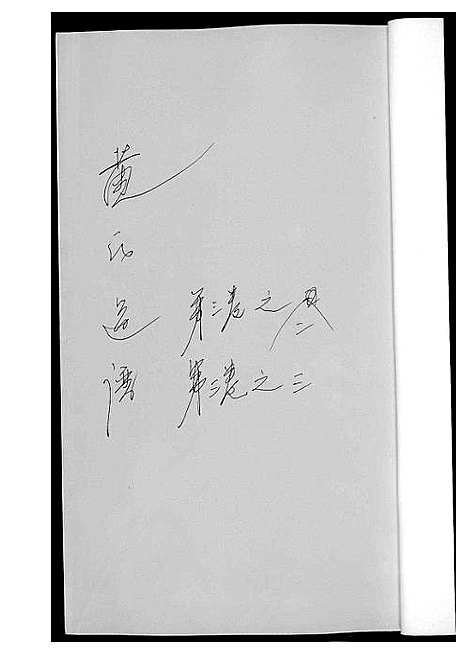 黄氏谱
第三卷之二
第三卷之三